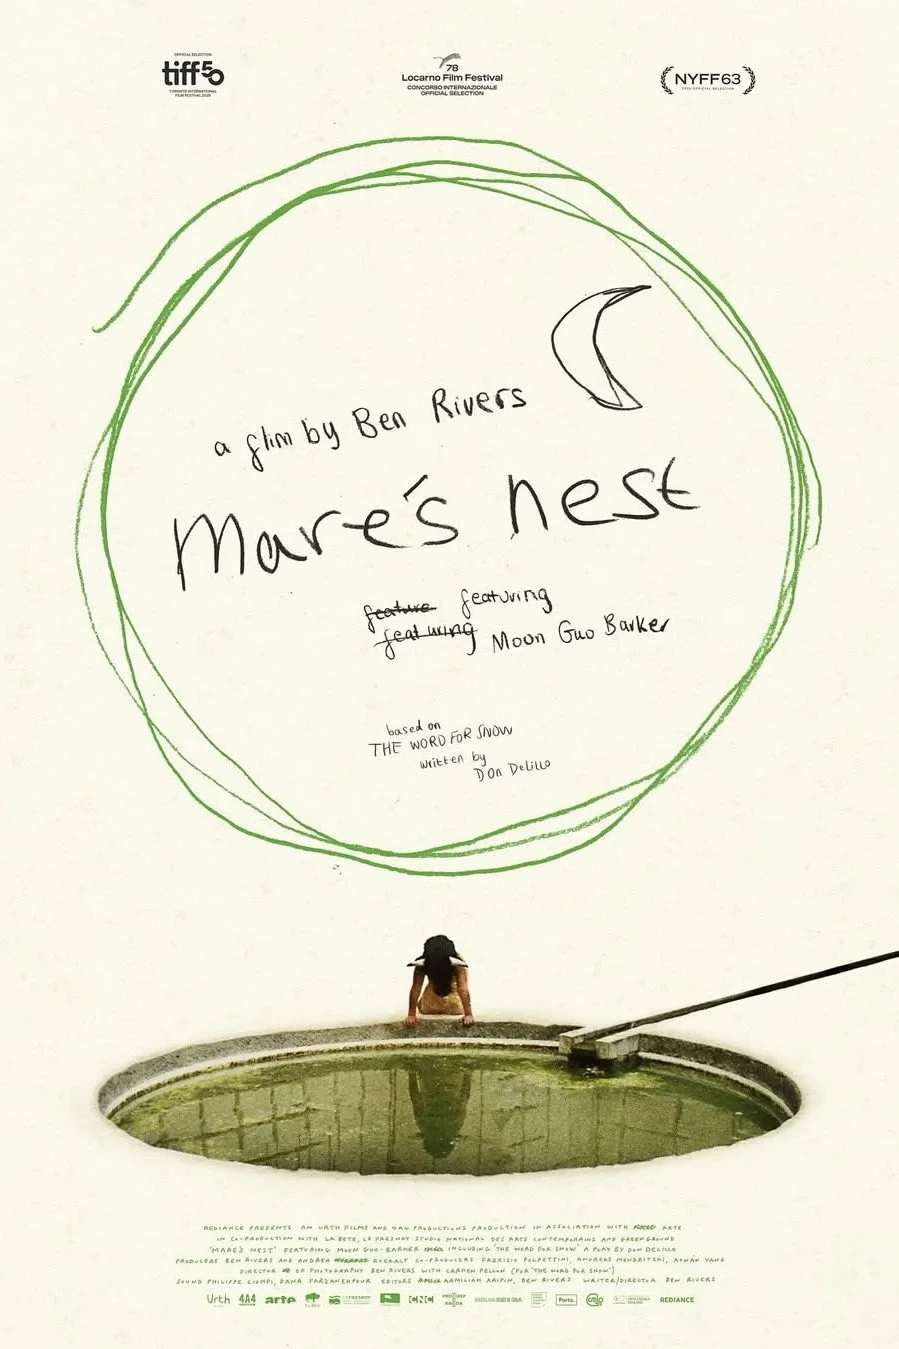 OFFICIAL SELECTION
tiff50
TORONTO INTERNATIONAL
FILM FESTIVAL 2025
78
Locarno Film Festival
CONCORSO INTERNAZIONALE
OFFICIAL SELECTION
NYFF63
2025 OFFICIAL SELECTION
a film by Ben Rivers
Mare's nest
feature featuring
featuring Moon Guo Barker
based on
THE WORD FOR SNOW
written by
Don DeLillo
REDIANCE PRESENTS AN URTH FILMS AND 4A4 PRODUCTIONS PRODUCTION IN ASSOCIATION WITH ARTE
IN CO-PRODUCTION WITH LA BETE, LE FRESNOY STUDIO NATIONAL DES ARTS CONTEMPORAINS AND GREENGROUND
'MARE'S NEST' FEATURING MOON GUO-BARKER INCLUDING 'THE WORD FOR SNOW' A PLAY BY DON DELILLO
PRODUCERS BEN RIVERS AND ANDREA QUERALT CO-PRODUCERS FABRIZIO POLPETTINI, ANDREAS MENDRITZKI, AONAN YANG
DIRECTOR OF PHOTOGRAPHY BEN RIVERS WITH CARMEN PELLON (FOR 'THE WORD FOR SNOW')
SOUND PHILIPPE CIOMPI, DANA FARZANEHPOUR EDITORS ARMILIAH ARIPIN, BEN RIVERS WRITER/DIRECTOR BEN RIVERS
Urth 4A4 arte LE FRESNOY CNC REDIANCE